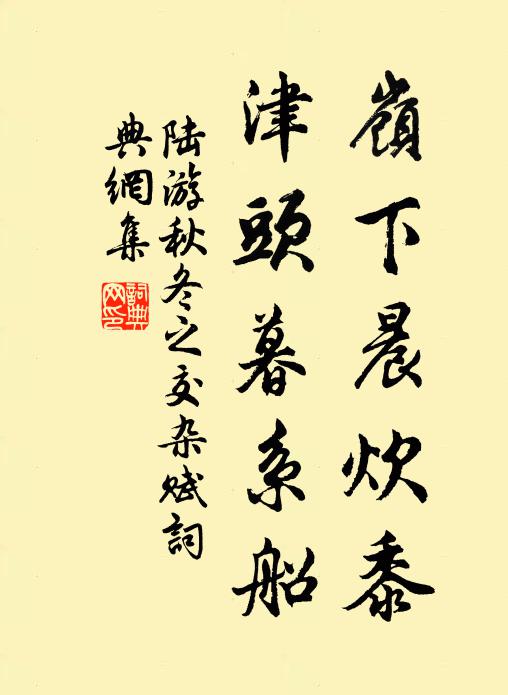 嶺下晨炊黍
津頭暮系船
陆游秋冬之交杂赋詞
典網集
詞典
网印